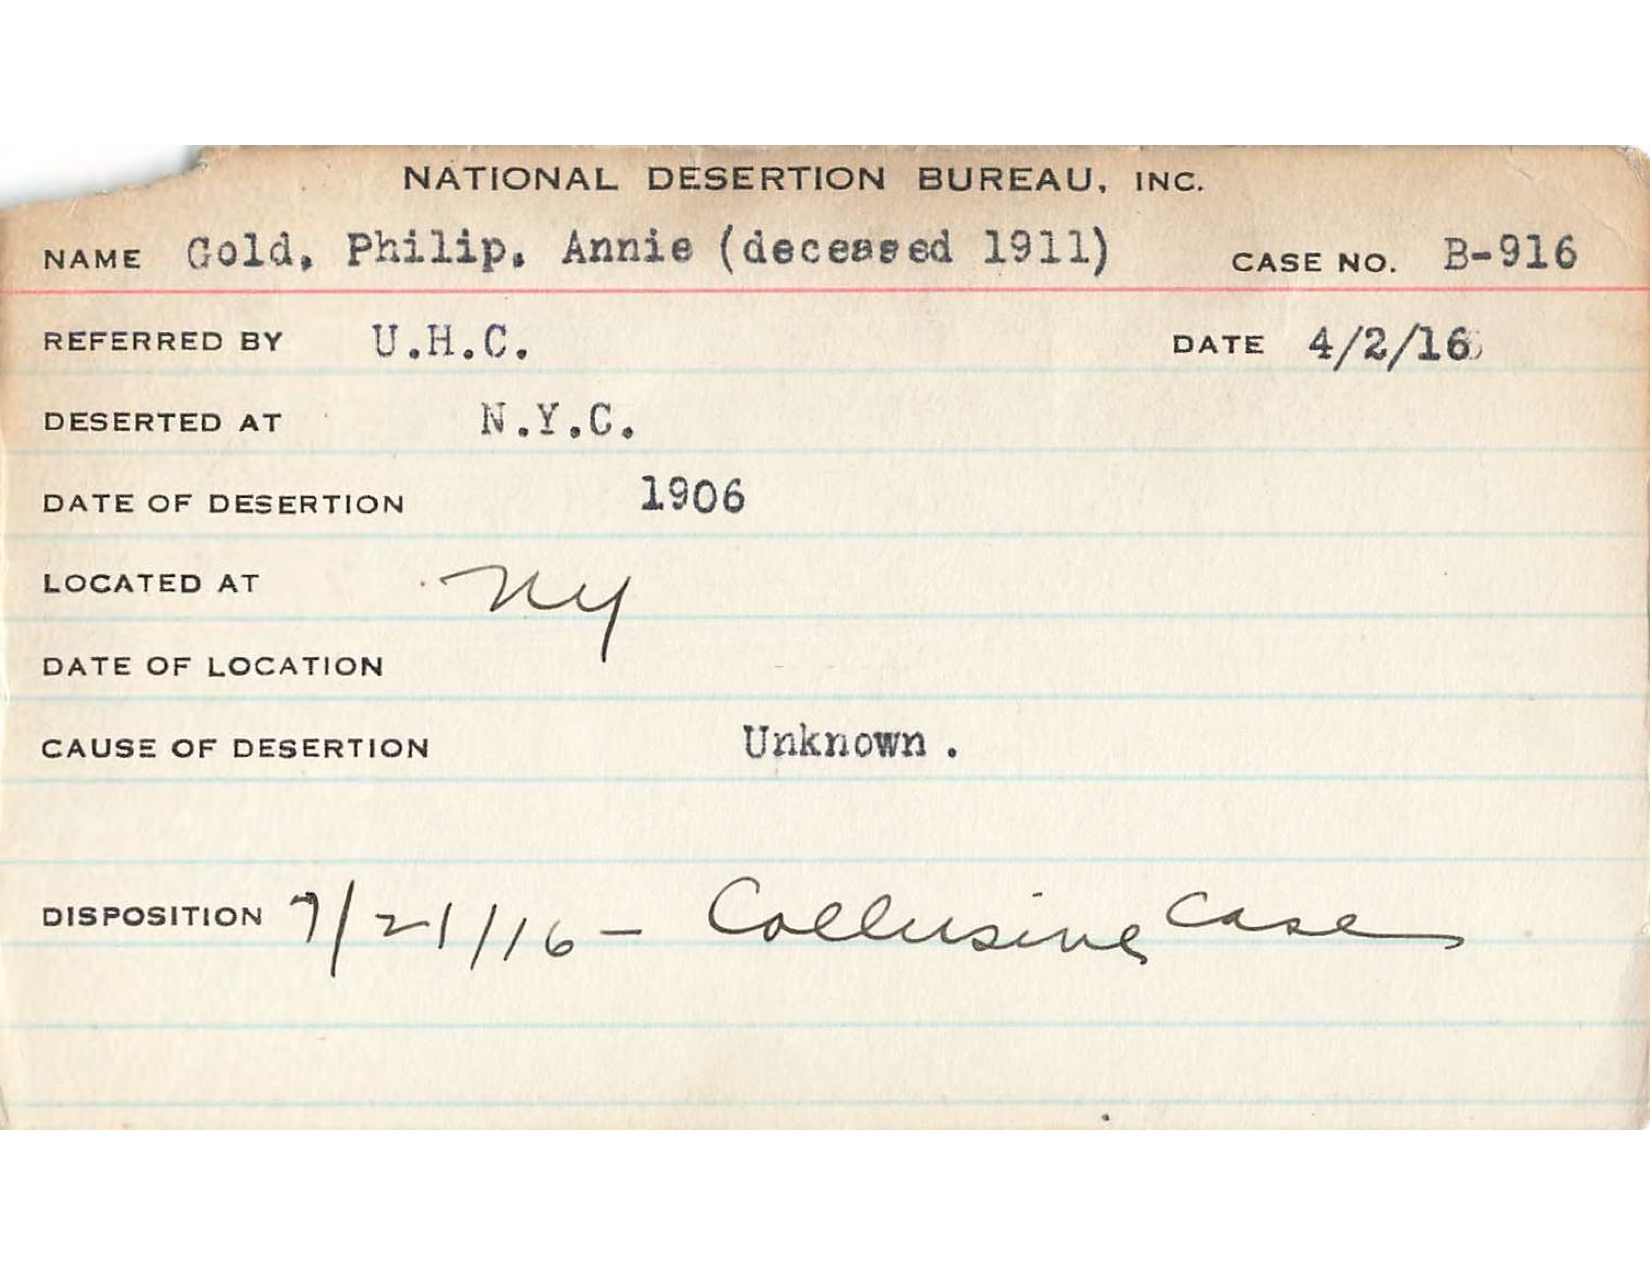 NATIONAL DESERTION BUREAU, INC.
NAME Gold, Philip, Annie (deceased 1911) CASE NO. B-916
REFERRED BY U.H.C. DATE 4/2/16
DESERTED AT N.Y.C.
DATE OF DESERTION 1906
LOCATED AT NY
DATE OF LOCATION
CAUSE OF DESERTION Unknown.
DISPOSITION 7/21/16 - Collusive Case